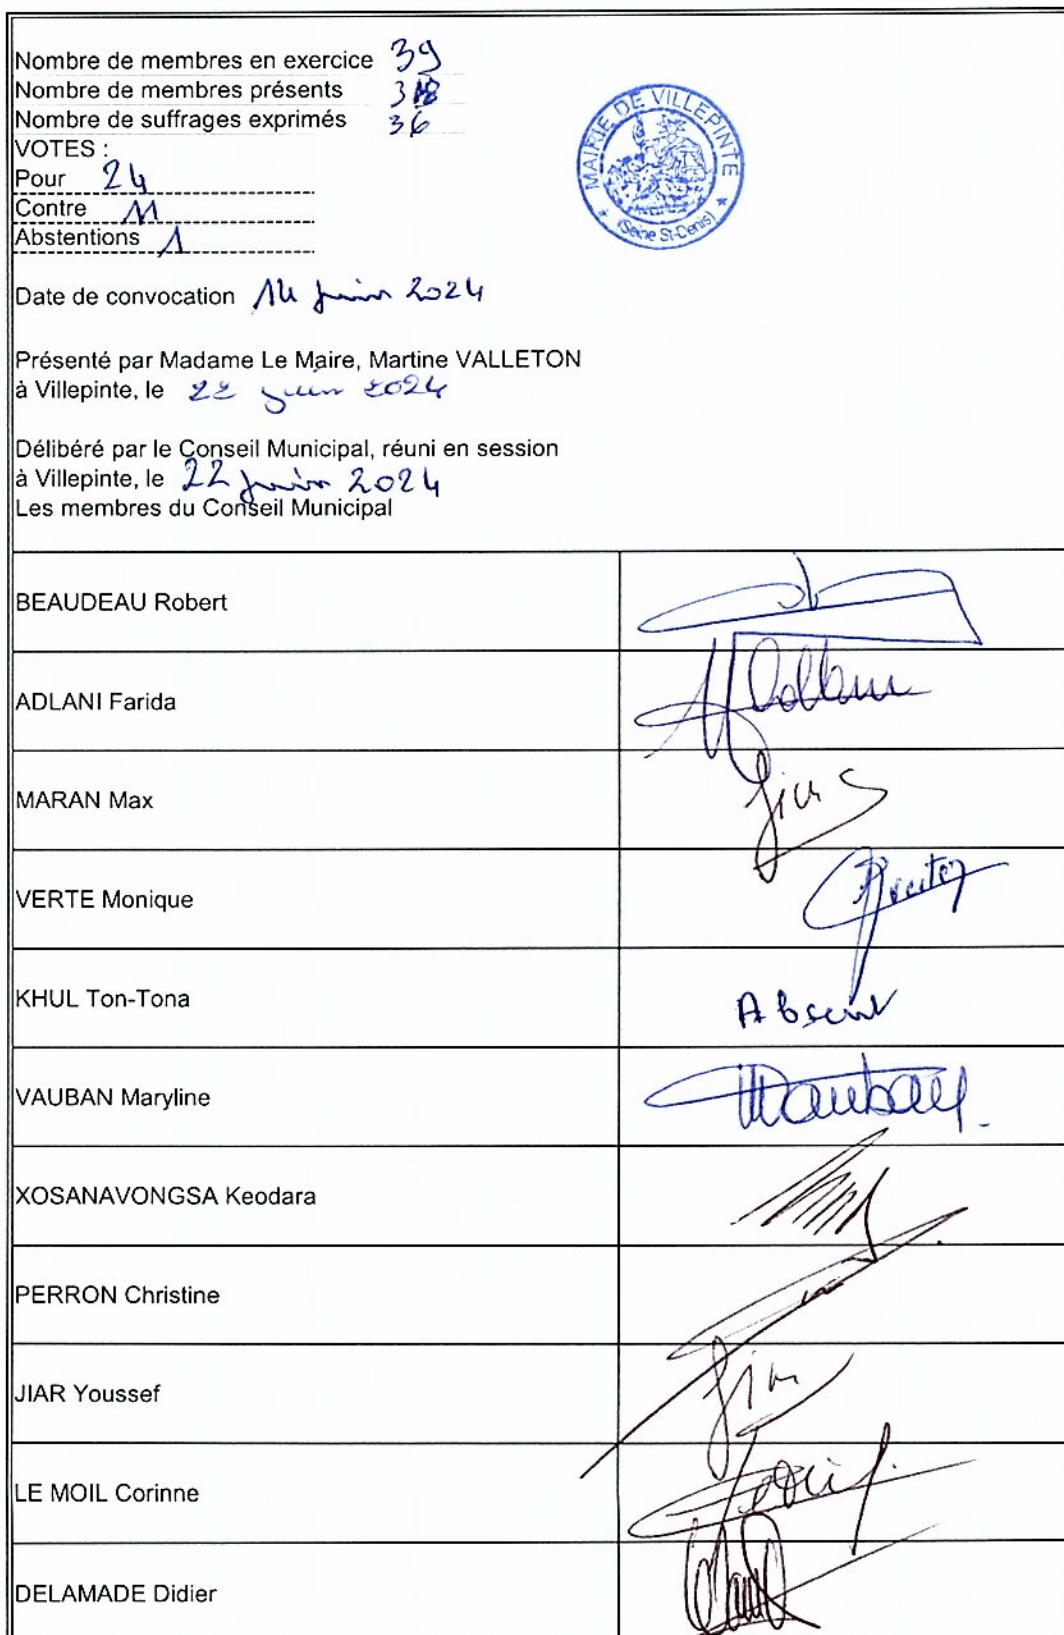 Nombre de membres en exercice 39
Nombre de membres présents
Nombre de suffrages exprimés 36
VOTES :
Pour 24
Contre 11
Abstentions 1
MAIRIE DE VILLEPINTE
(Seine St-Denis)
Date de convocation 14 juin 2024
Présenté par Madame Le Maire, Martine VALLETON
à Villepinte, le 22 juin 2024
Délibéré par le Conseil Municipal, réuni en session
à Villepinte, le 22 juin 2024
Les membres du Conseil Municipal
BEAUDEAU Robert
ADLANI Farida
MARAN Max
VERTE Monique
KHUL Ton-Tona Absent
VAUBAN Maryline
XOSANAVONGSA Keodara
PERRON Christine
JIAR Youssef
LE MOIL Corinne
DELAMADE Didier